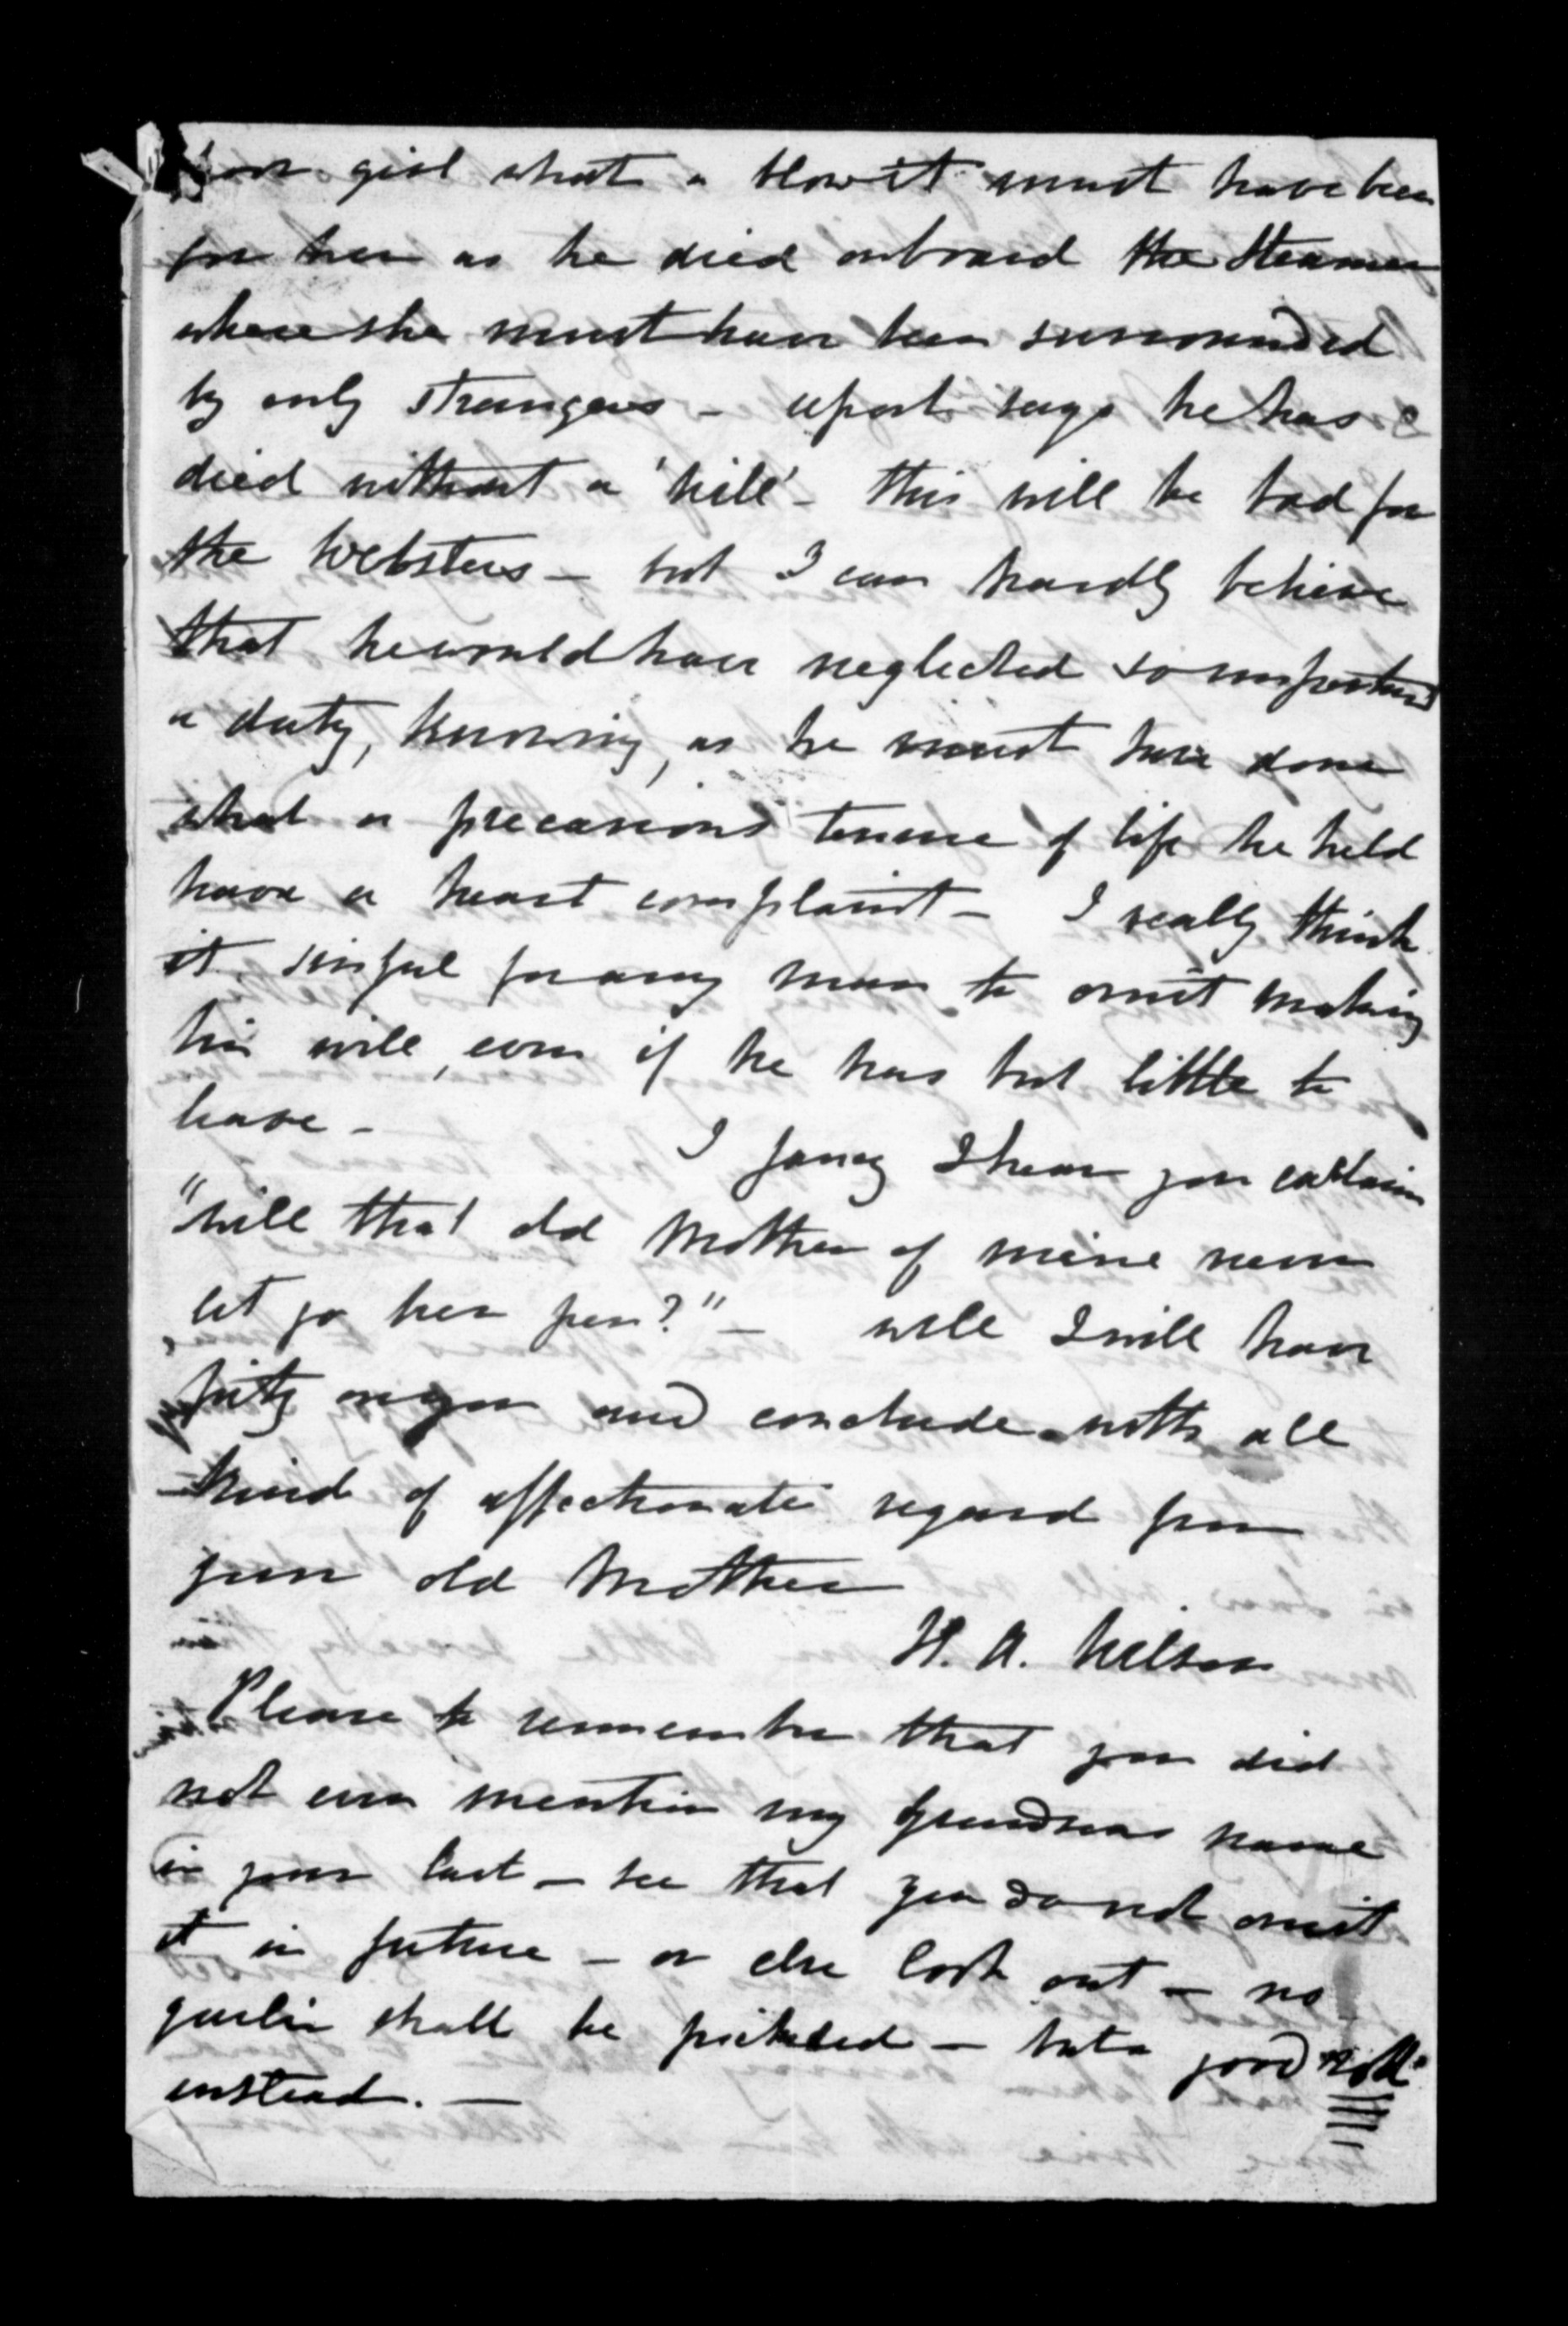 Poor girl what a blow it must have been
for her as he died onboard the Steamer
where she must have been surrounded
by only strangers – report says he has
died without a 'Will' – this will be bad for
the Websters – but I can hardly believe
that he would have neglected so important
a duty, knowing, as he must have done
what a precarious tenure of life he held
have a heart complaint – I really think
it sinful for any man to omit making
his will, even if he has but little to
leave –
I fancy I hear you exclaim
"Will that old Mother of mine never
let go her pen?" – well I will have
pity on you and conclude with all
kind of affectionate regard from
your old Mother
H. A. Wilson
Please to remember that you did
not even mention my Grandsons name
in your last – see that you do not omit
it in future – or else look out – no
garlic shall be pickled – but a good
instead. –